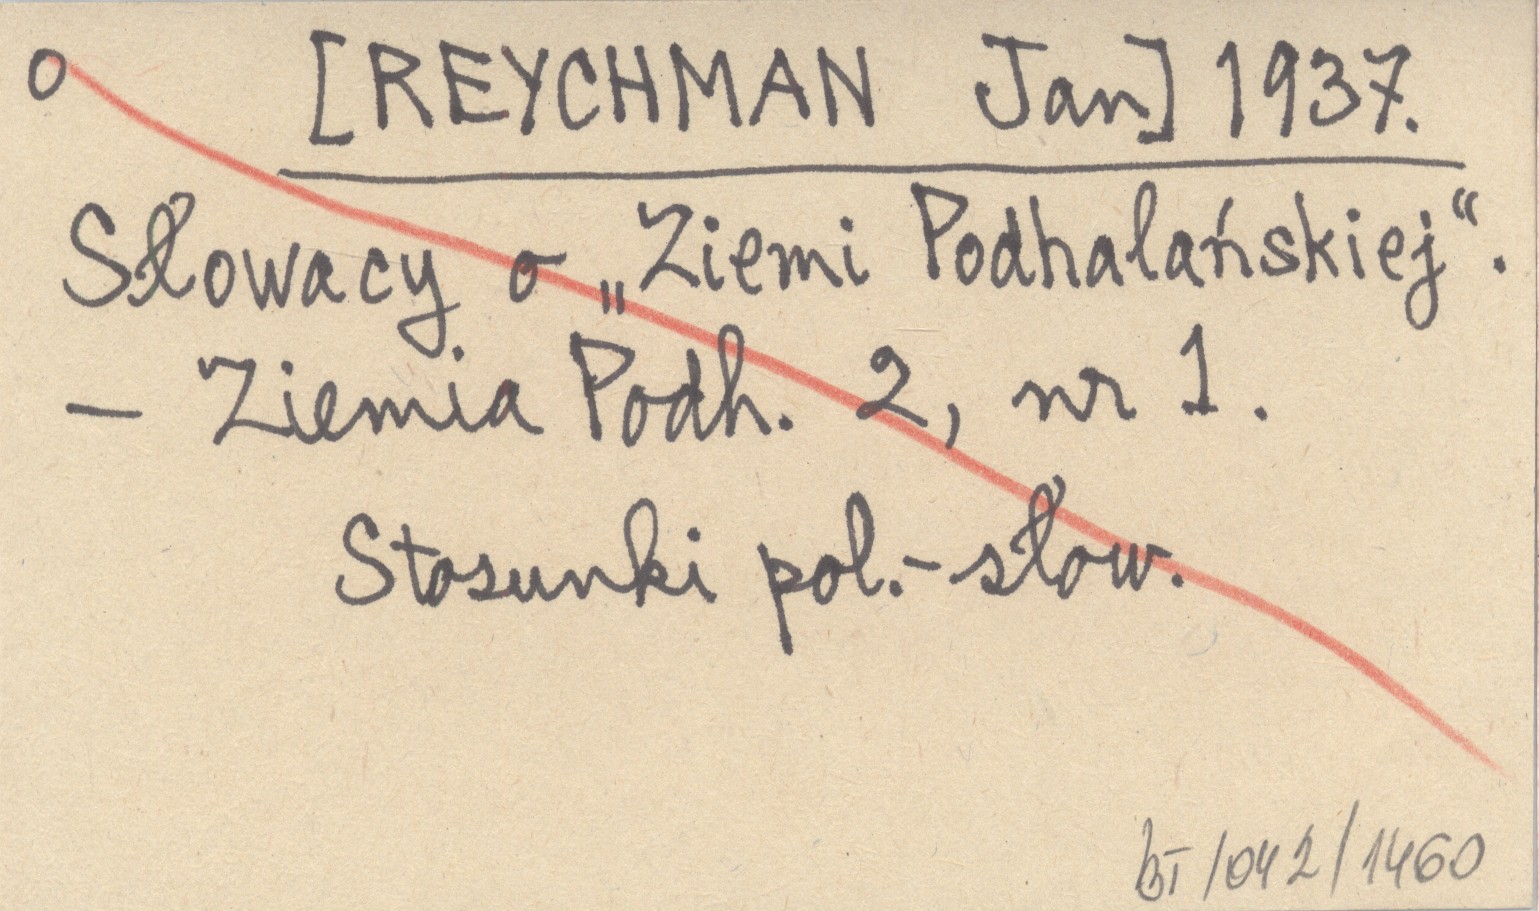 o [REYCHMAN Jan] 1937.
Słowacy o „Ziemi Podhalańskiej“.
– Ziemia Podh. 2, nr 1.
Stosunki pol.-słow.
BT/042/1460